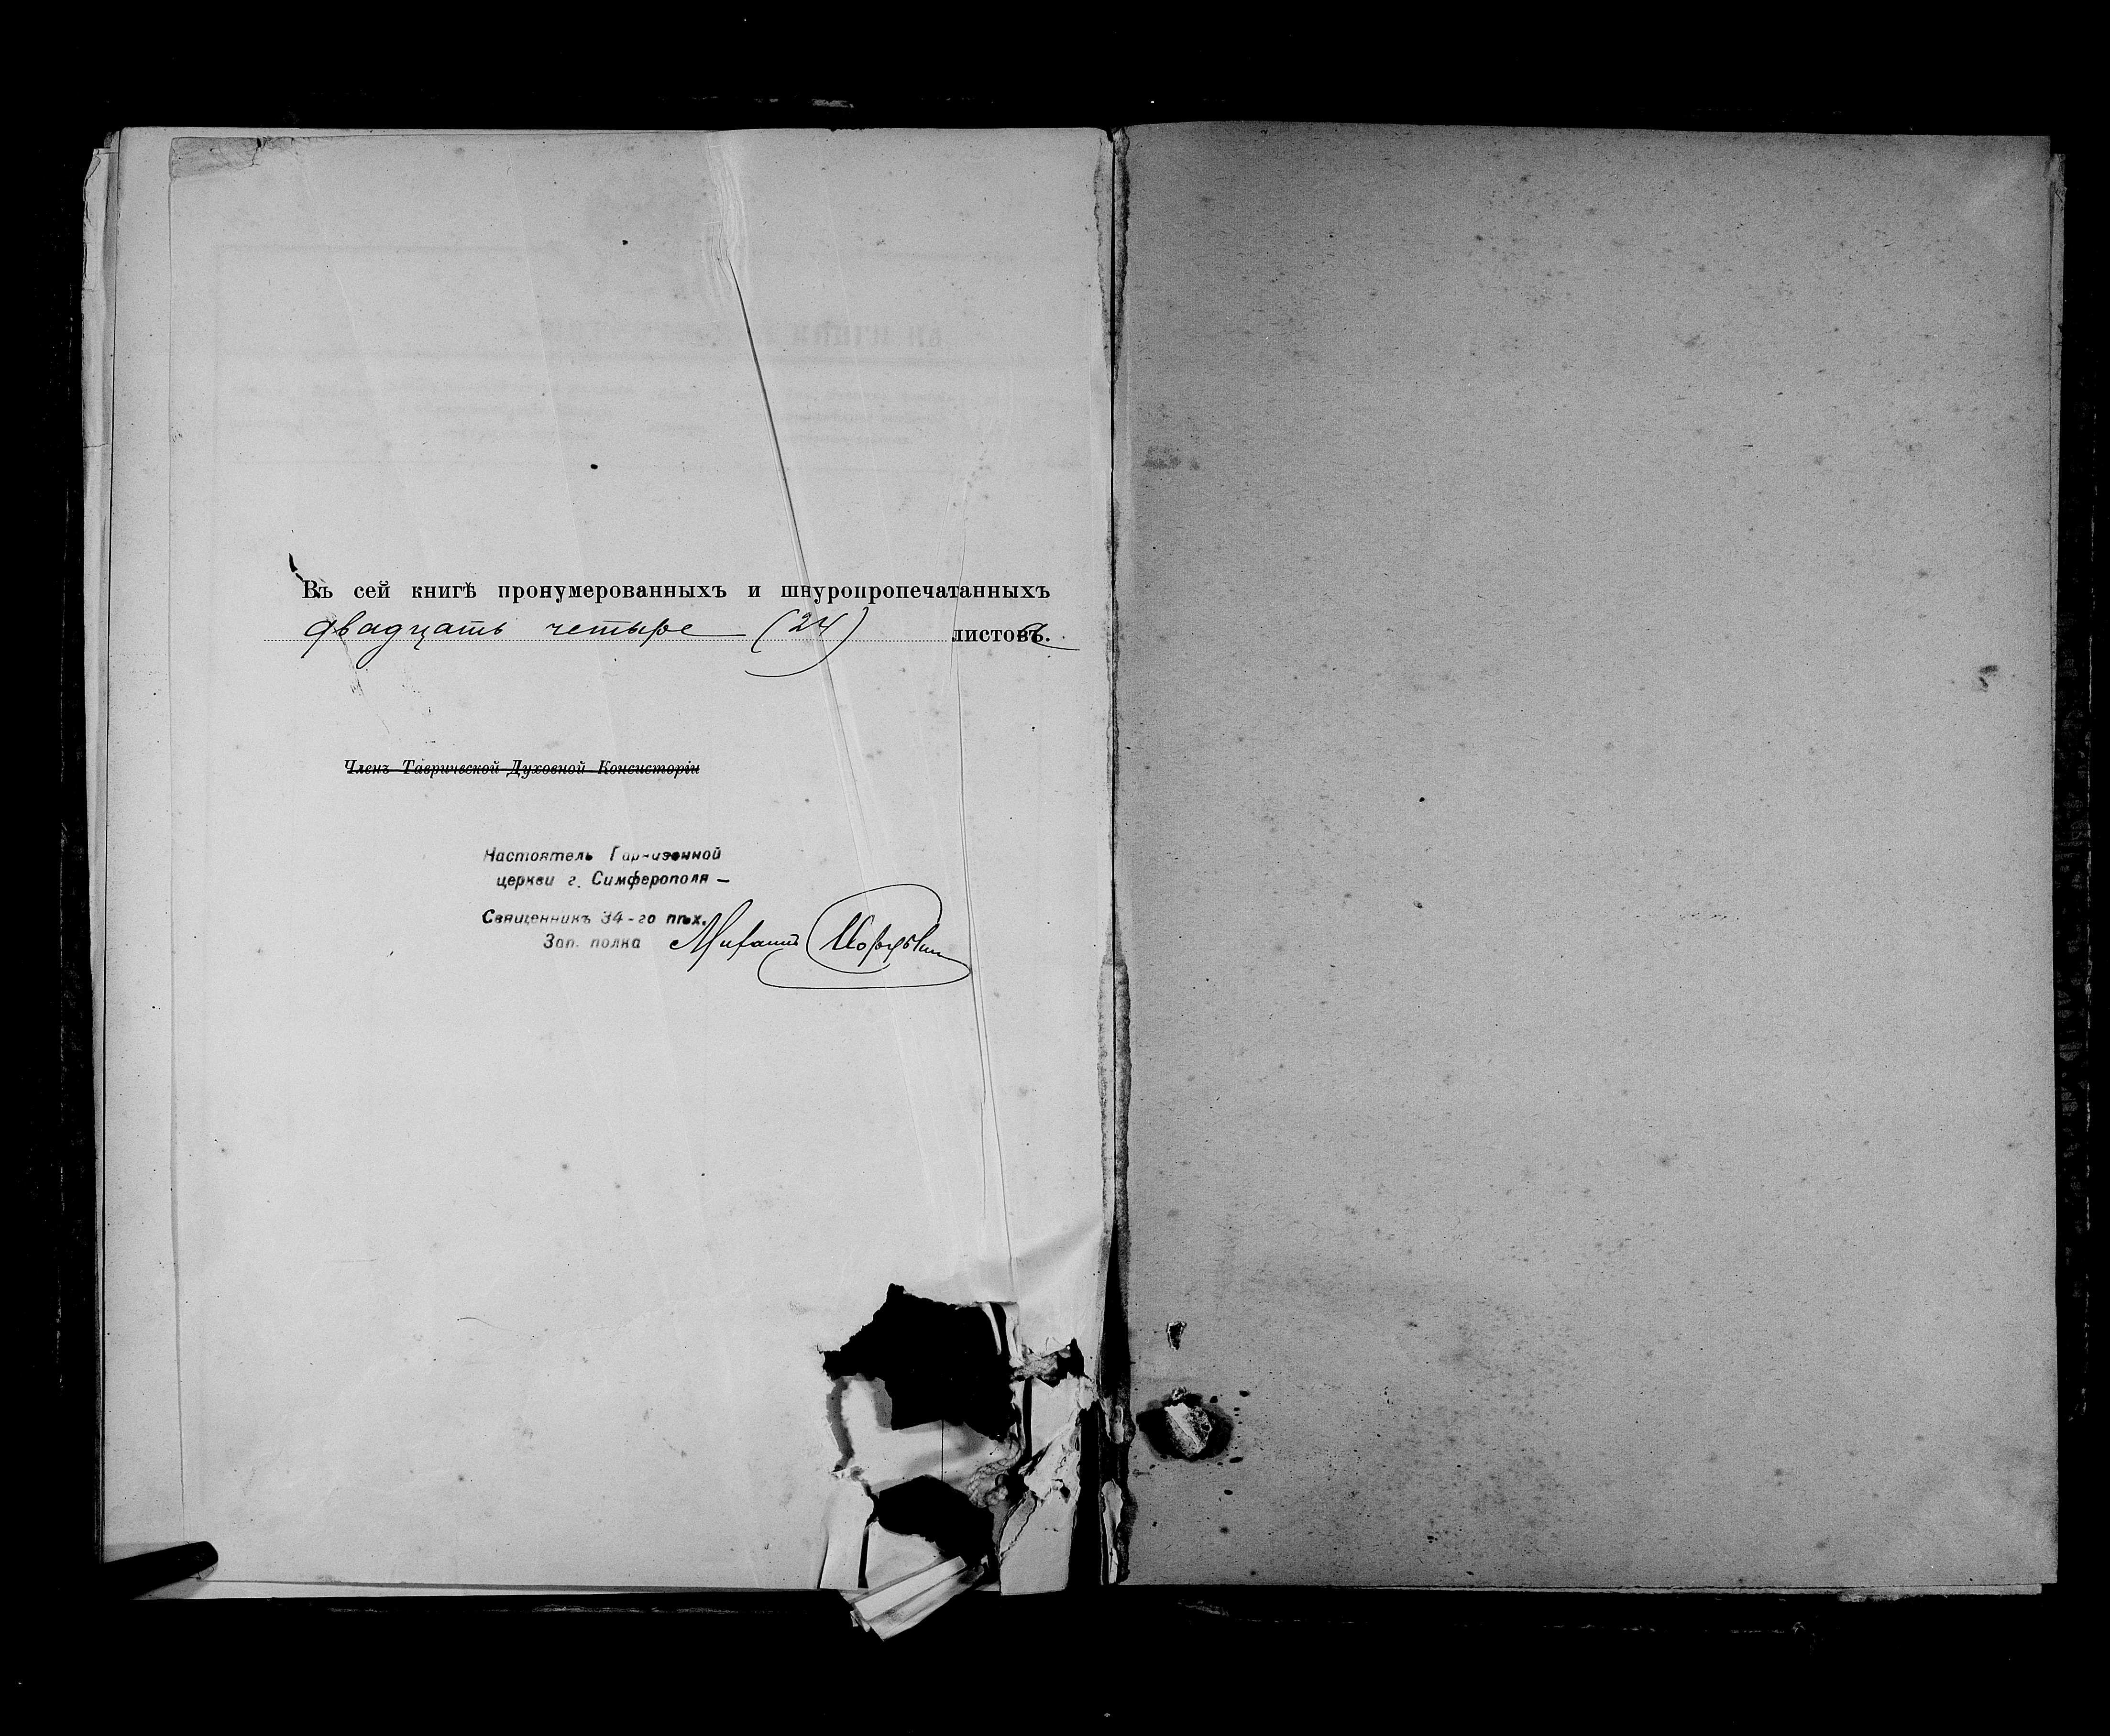 Въ сей книгѣ пронумерованныхъ и шнуропропечатанныхъ
двадцать четыре (24) листа.
Членъ Таврической Духовной Консисторіи
Настоятель Гарнизонной
церкви г. Симферополя —
Священникъ 34-го пѣх.
Зап. полка Михаилъ